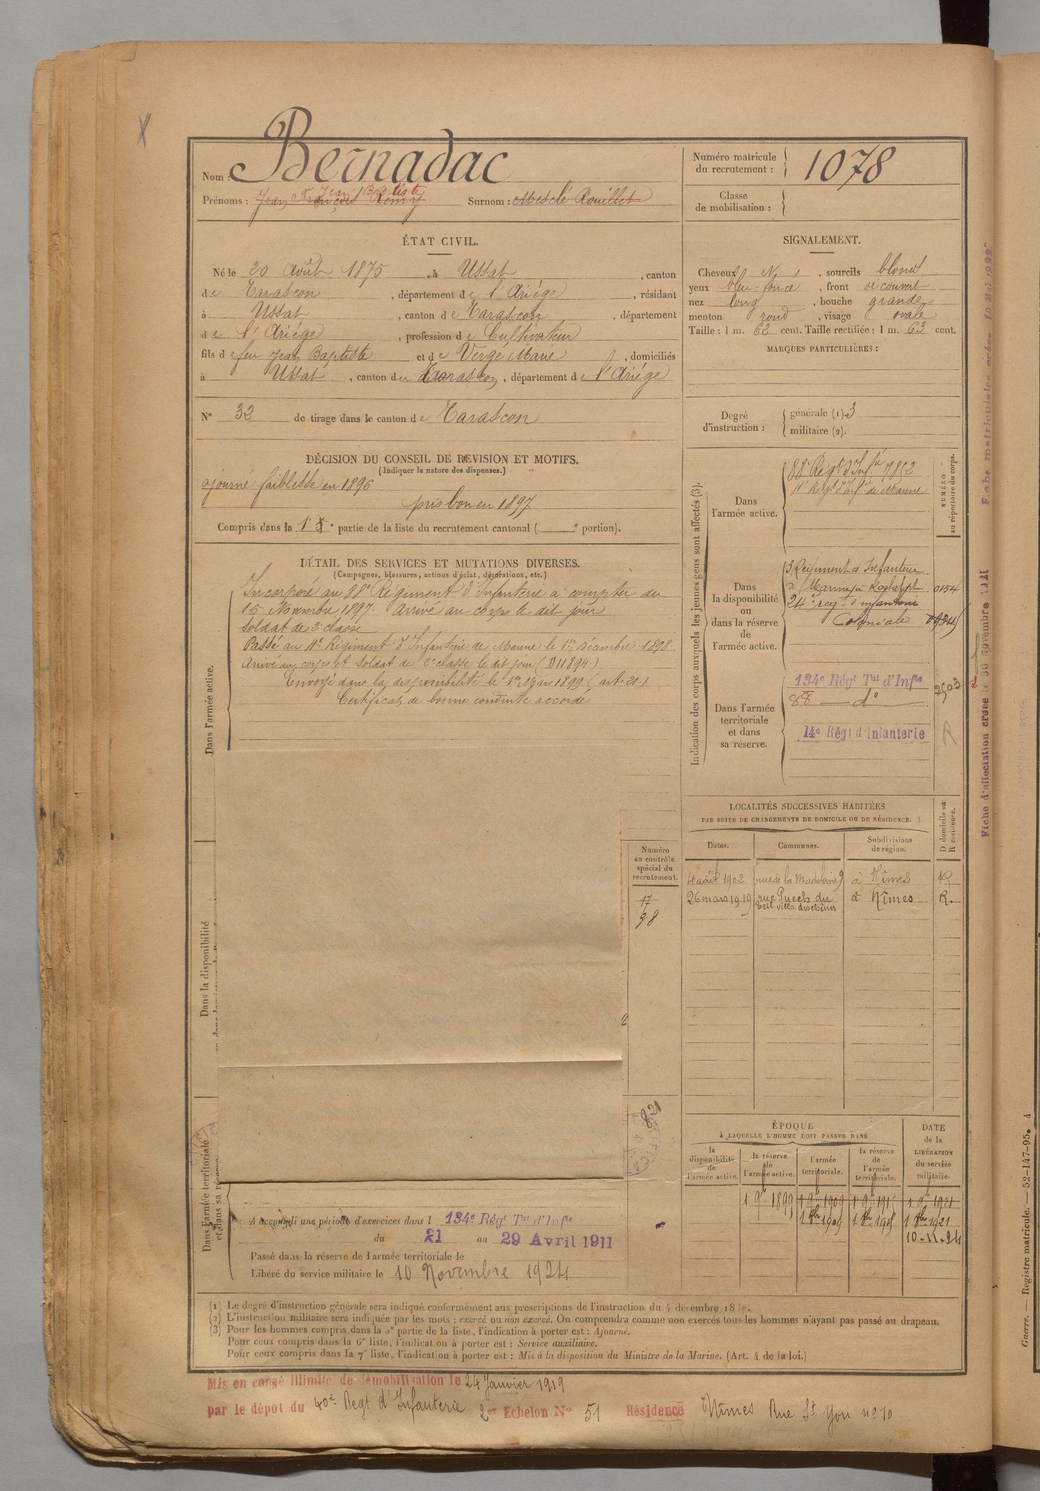 Nom : Bernadac
Prénoms : Jean Baptiste Surnom : Mescle Rouillet
Numéro matricule du recrutement : 1078
Classe de mobilisation :
ÉTAT CIVIL.
Né le 20 Août 1875, à Ussat, canton
de Tarascon, département de l'Ariège, résidant
à Ussat, canton de Tarascon, département
de l'Ariège, profession de Cultivateur
fils de feu Jean Baptiste et de Vergé Marie, domiciliés
à Ussat, canton de Tarascon, département de l'Ariège
N° 32 de tirage dans le canton de Tarascon
SIGNALEMENT.
Cheveux N, sourcils blond
yeux bleu foncé, front découvert
nez long, bouche grande
menton rond, visage ovale
Taille : 1 m. 62 cent. Taille rectifiée : 1 m. 63 cent.
MARQUES PARTICULIÈRES :
Degré d'instruction : générale (1) 3
militaire (2).
DÉCISION DU CONSEIL DE REVISION ET MOTIFS.
(Indiquer la nature des dispenses.)
ajourné faiblesse en 1896
pris bon en 1897
Compris dans la 1e partie de la liste du recrutement cantonal ( portion).
DÉTAIL DES SERVICES ET MUTATIONS DIVERSES.
(Campagnes, blessures, actions d'éclat, décorations, etc.)
Incorporé au 88e Régiment d'Infanterie à compter du
16 Novembre 1897. Arrivé au corps le dit jour
soldat de 2e classe
Passé au 11e Régiment d'Infanterie de Marine le 1er Décembre 1898
Arrivé au corps et soldat de 2e classe le dit jour (D11894)
Envoyé dans la disponibilité le 1er 1899 (art.
Certificat de bonne conduite accordé
Dans l'armée active.
Dans la disponibilité
Dans l'armée territoriale et dans sa réserve
Indication des corps auxquels les jeunes gens sont affectés (3).
NUMÉRO au répertoire du corps.
Dans l'armée active.
88e Régt d'Infie 7852
11e Régt d'Inf de Marine
Dans la disponibilité ou dans la réserve de l'armée active.
3 Régiment d'Infanterie
Marine à Rochefort 0154
24e reg. d'infanterie
Coloniale
Dans l'armée territoriale et dans sa réserve.
134e Régt Tal d'Infie 2503
88 — do
14e Régt d'Infanterie
LOCALITÉS SUCCESSIVES HABITÉES
PAR SUITE DE CHANGEMENTS DE DOMICILE OU DE RÉSIDENCE.
D domicile ou R résidence.
Dates. Communes. Subdivisions de région.
4 août 1902 rue de la Madeleine 9 à Nîmes R
26 mars 1919 rue Puech du à Nîmes R.
Numéro au contrôle spécial du recrutement.
17
98
821
ÉPOQUE
À LAQUELLE L'HOMME DOIT PASSER DANS
la disponibilité de l'armée active. la réserve de l'armée active. l'armée territoriale. la réserve de l'armée territoriale. DATE de la LIBÉRATION du service militaire.
1 9re 1899 1 9re 1909 1 9re 1915 1 9re 1921
10-11-24
A accompli une période d'exercices dans l 134e Régt Tal d'Infie
du 21 au 29 Avril 1911
Passé dans la réserve de l'armée territoriale le
Libéré du service militaire le 10 Novembre 1924
(1) Le degré d'instruction générale sera indiqué conformément aux prescriptions de l'instruction du 4 décembre
(2) L'instruction militaire sera indiquée par les mots : exercé ou non exercé. On comprendra comme non exercés tous les hommes n'ayant pas passé au drapeau.
(3) Pour les hommes compris dans la 5e partie de la liste, l'indication à porter est : Ajourné.
Pour ceux compris dans la 6e liste, l'indication à porter est : Service auxiliaire.
Pour ceux compris dans la 7e liste, l'indication à porter est : Mis à la disposition du Ministre de la Marine. (Art. 4 de la loi.)
Mis en congé illimité de démobilisation le 24 Janvier 1919
par le dépôt du 40e Regt d'Infanterie 2e Echelon N° 51 Résidence Nîmes Rue St Yon no 10
Fiche d'affectation créée le 30 Novembre 1921
Fiche matriculaire créée 10 Mai 1922
Guerre. — Registre matricule. — 52-147-95. 4